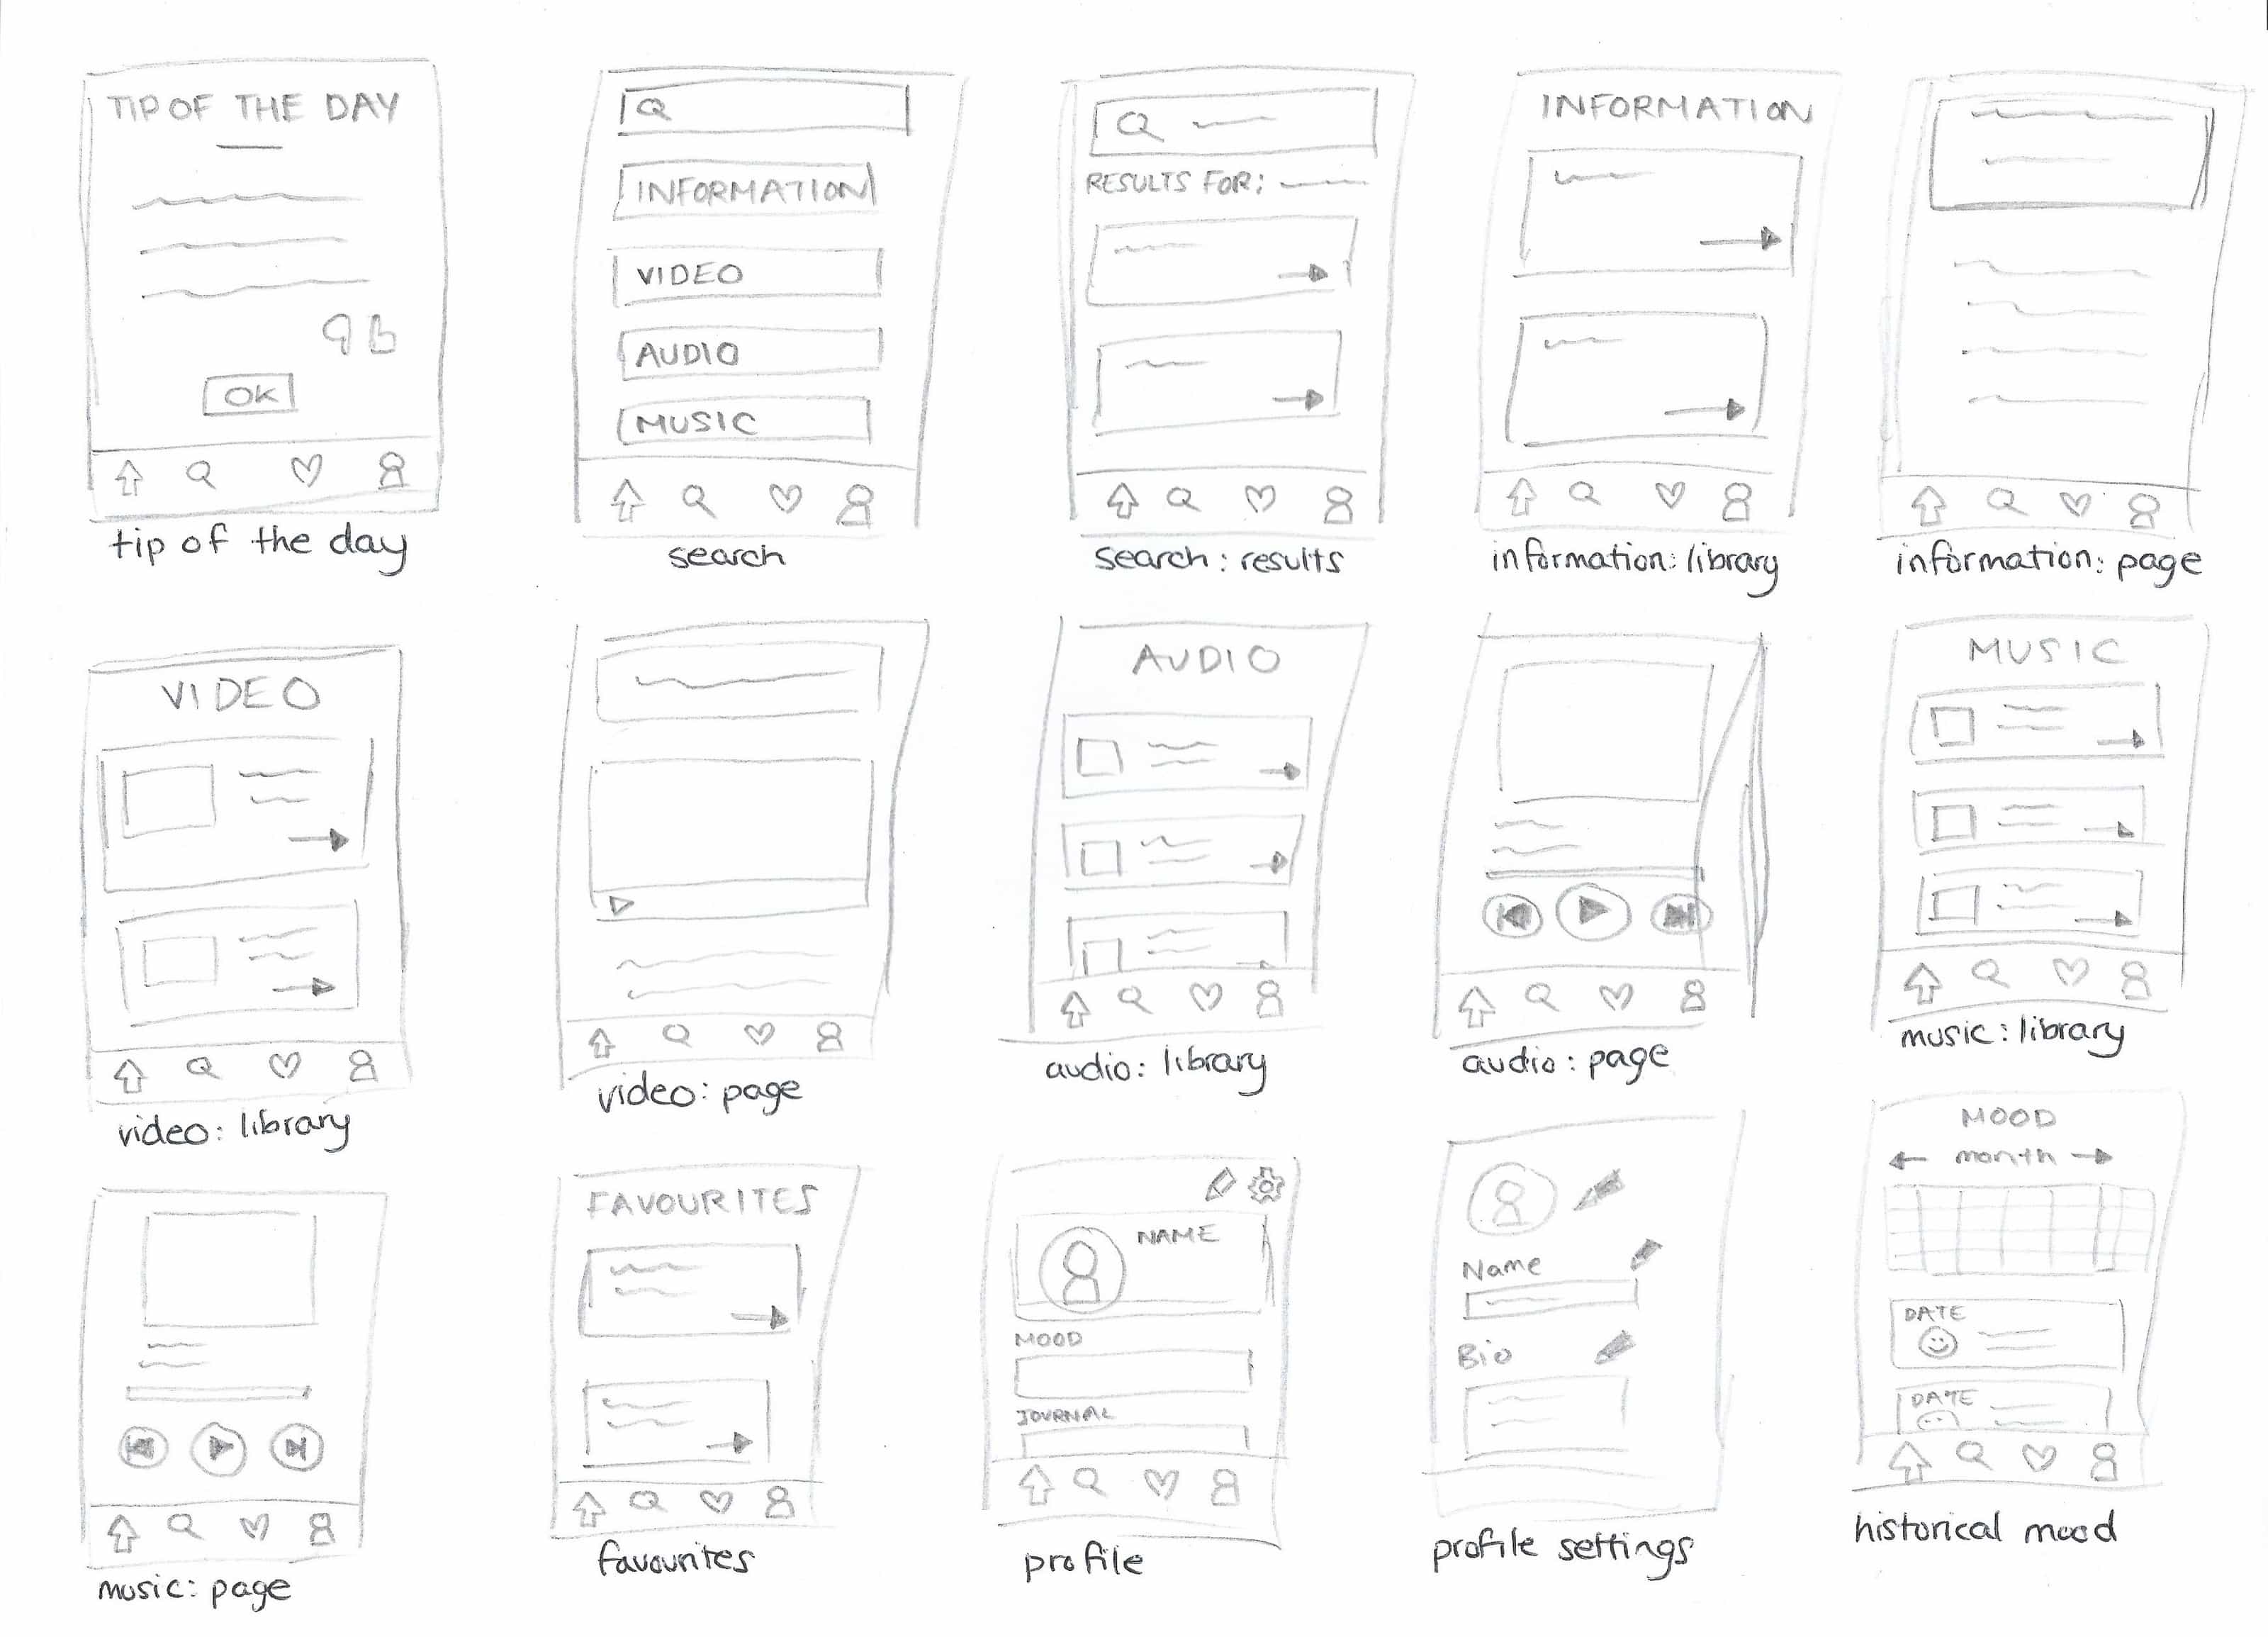 TIP OF THE DAY
OK
tip of the day
INFORMATION
VIDEO
AUDIO
MUSIC
search
RESULTS FOR:
search: results
INFORMATION
information: library
information: page
VIDEO
video: library
video: page
AUDIO
audio: library
audio: page
MUSIC
music: library
music: page
FAVOURITES
favourites
NAME
MOOD
JOURNAL
profile
Name
Bio
profile settings
MOOD
month
DATE
DATE
historical mood